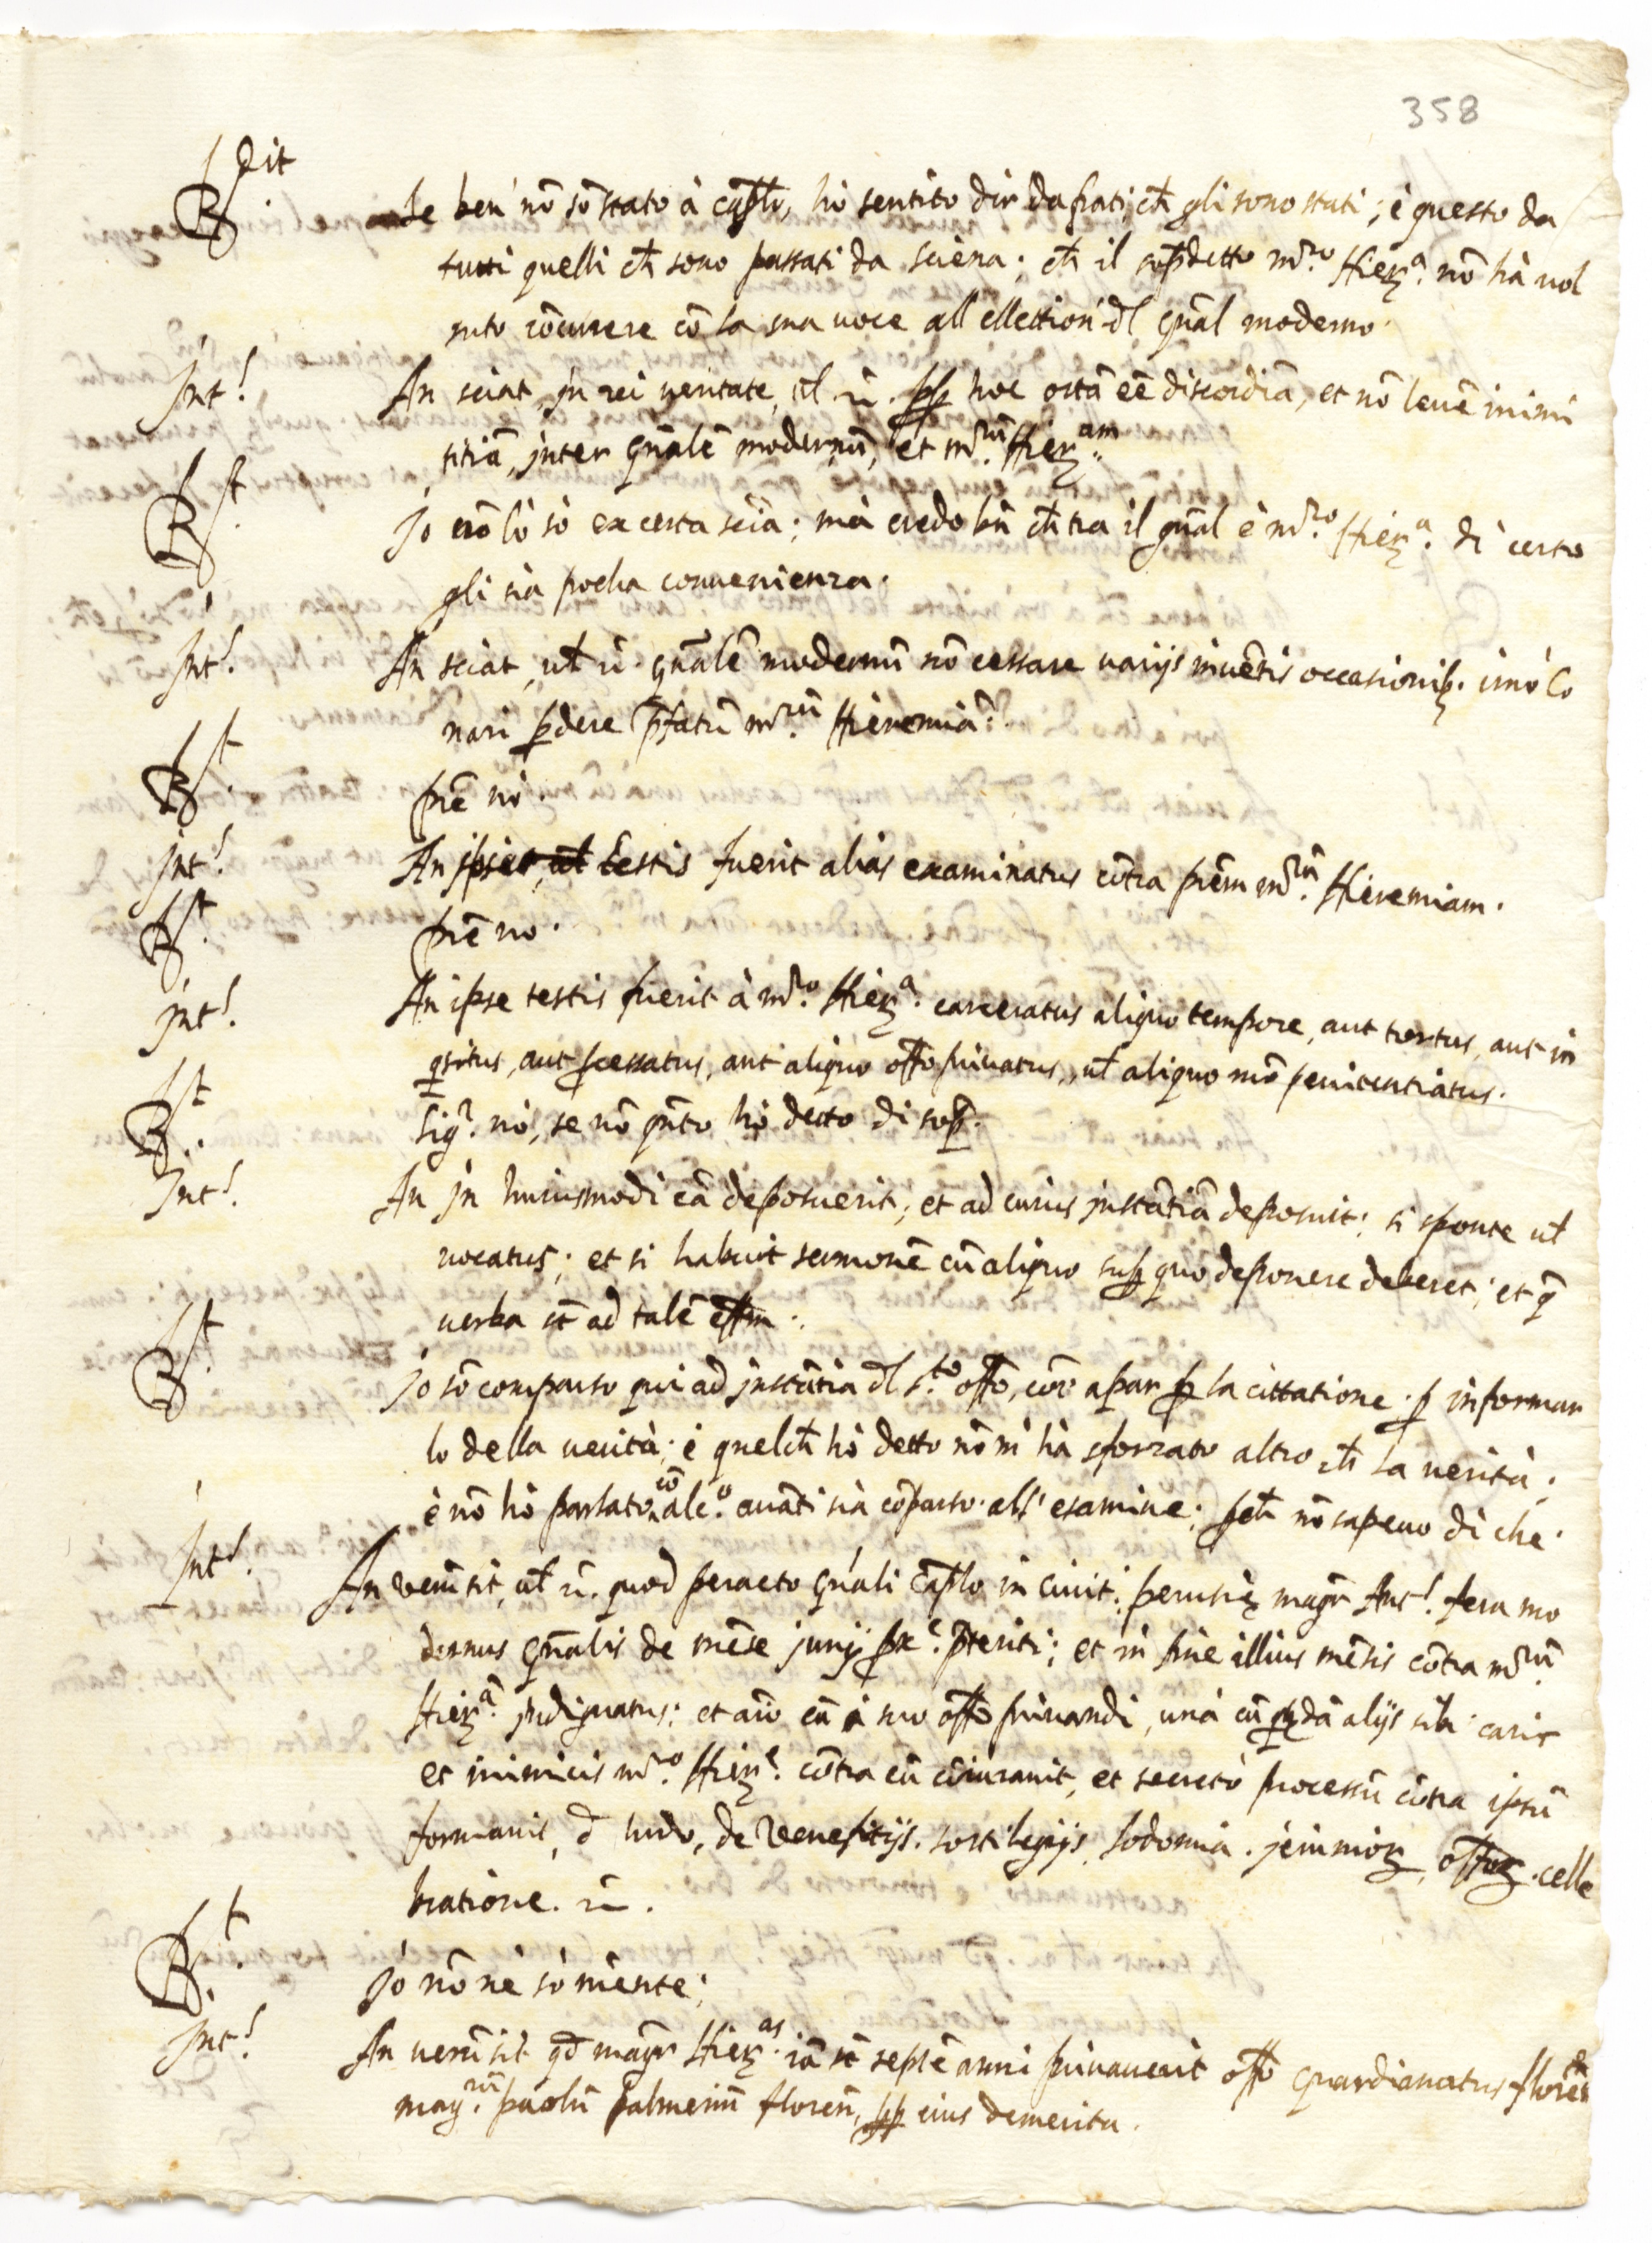 358
R dit Se ben nō sō stato à capło, hò sentito dir da frati, ch̄ gli sono stati; è questo da
tutti quelli ch̄ sono passati da siena; ch̄ il sop̄detto m.ro Hier.a nō hà uol
suto cōcurrere cō la sua uoce all'ellettion' dl gn̄al moderno.
Int.s An sciat, in rei ueritate, ul ..., pp hoc ortā eē discordiā, et nō leuē inimi
titiā, inter gn̄alē modernū, et m.rū Hier.am
R.t Jo nō lò sò ex certa scīa; mà credo bn̄ ch̄ tra il gn̄al è m.ro Hier.a di certo
gli sia pocha conuenienza.
Int.s An sciat, ul ... gn̄alē modernū nō cessare uarijs inuētis occasionib. imò co
nari pdere p̄fatū m.rū Hieremiā.
R.t prē nò.
Int.s An ipse testis fuerit aliàs examinatus cōtra prēm m.rū Hieremiam.
R.t prē no.
Int.s An ipse testis fuerit à m.ro Hier.a carceratus aliquo tempore, aut tortus, aut in
qsitus, aut pcessatus, aut aliquo offo priuatus, ul aliquo mō penitentiatus.
R.t Sig.r nò, se nō qn̄to hò detto di sop.
Int.s An in huiusmodi cā deposuerit; et ad cuius instātiā deposuit; si sponte ul
uocatus; et si habuit sermonē cū aliquo sup quo deponere deberet; et q̄
uerba st̄ ad talē effm.
R.t Jo sō comparso qui ad instātia dl s.to offo, cōe apar p la cittatione. p informar
lo della uerità; è quelch̄ hò detto nō m'hà sforzato altro ch̄ la uerità;
è nō hò parlato cō alc.o auāti sia cōparso all'esamine; pch̄ nō sapeuo di che.
Int.s An verū sit, ul ... quod peracto gn̄ali cāplo in ciuit. perusię mag.r Ant.s fera mo
dernus gn̄alis de mēse junij px.e p̄teriti; et in fine illius mēsis cōtra m.rū
Hier.ā indignatus; et aīo eū à suo offo priuandi, unà cū qbdā alijs sibi caris
et inimicis m.ro Hier.e cōtra eū cōiurauit, et secretò processū cōtra ipsū
formauit, d ludo, de venefitijs. sortilegijs, sodomia. jeiunior, offor. celle
bratione. ...
R.t Jo nō nè sò niente;
Int.s An uerū sit qd mag.r Hier.as iā st̄ septē anni priuauerit offo guardianatus florēn
mag.rū paolū palmeriū florēn, pp eius demerita.